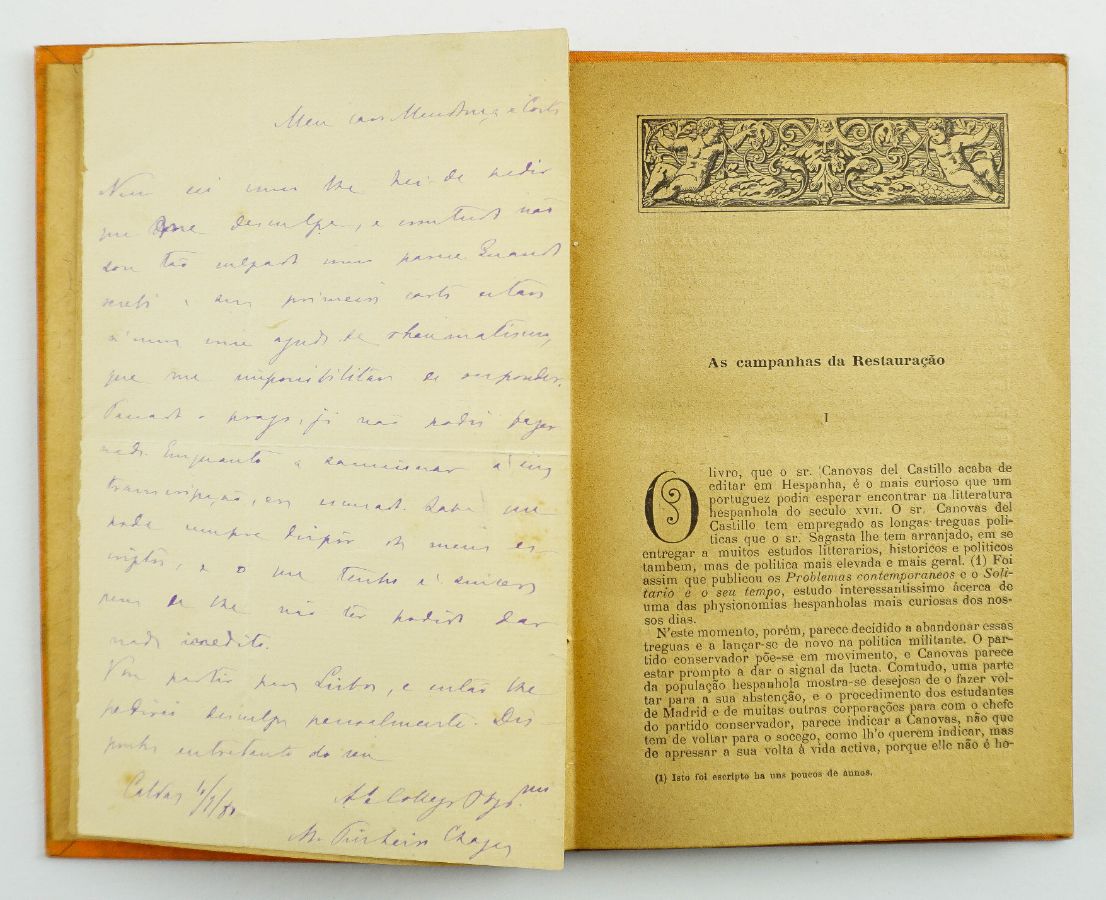 Meu caro Mendonça e Costa
Nem sei como lhe hei-de pedir
que me desculpe, e comtudo não
sou tão culpado como parece. Quando
recebi a sua primeira carta estava
com um ataque agudo de rheumatismo,
que me impossibilitava de responder.
Passado o prazo, já não podia fazer
nada. Emquanto a
transcripção, era escusado. Sabe que
pode sempre dispôr dos meus es-
criptos, e o que tenho é sincera
pena de lhe não ter podido dar
nada inedito.
Vou partir para Lisboa, e então lhe
pedirei desculpa pessoalmente. Dis-
ponha entretanto do seu
Caldas
Am.º Collega Obg.mo
M. Pinheiro Chagas
As campanhas da Restauração
I
O livro, que o sr. Canovas del Castillo acaba de
editar em Hespanha, é o mais curioso que um
portuguez podia esperar encontrar na litteratura
hespanhola do seculo XVII. O sr. Canovas del
Castillo tem empregado as longas treguas poli-
ticas que o sr. Sagasta lhe tem arranjado, em se
entregar a muitos estudos litterarios, historicos e politicos
tambem, mas de politica mais elevada e mais geral. (1) Foi
assim que publicou os Problemas contemporaneos e o Soli-
tario e o seu tempo, estudo interessantissimo ácerca de
uma das physionomias hespanholas mais curiosas dos nos-
sos dias.
N'este momento, porém, parece decidido a abandonar essas
treguas e a lançar-se de novo na politica militante. O par-
tido conservador põe-se em movimento, e Canovas parece
estar prompto a dar o signal da lucta. Comtudo, uma parte
da população hespanhola mostra-se desejosa de o fazer vol-
tar para a sua abstenção, e o procedimento dos estudantes
de Madrid e de muitas outras corporações para com o chefe
do partido conservador, parece indicar a Canovas, não que
tem de voltar para o socego, como lh'o querem indicar, mas
de apressar a sua volta á vida activa, porque elle não é ho-
(1) Isto foi escripto ha uns poucos de annos.